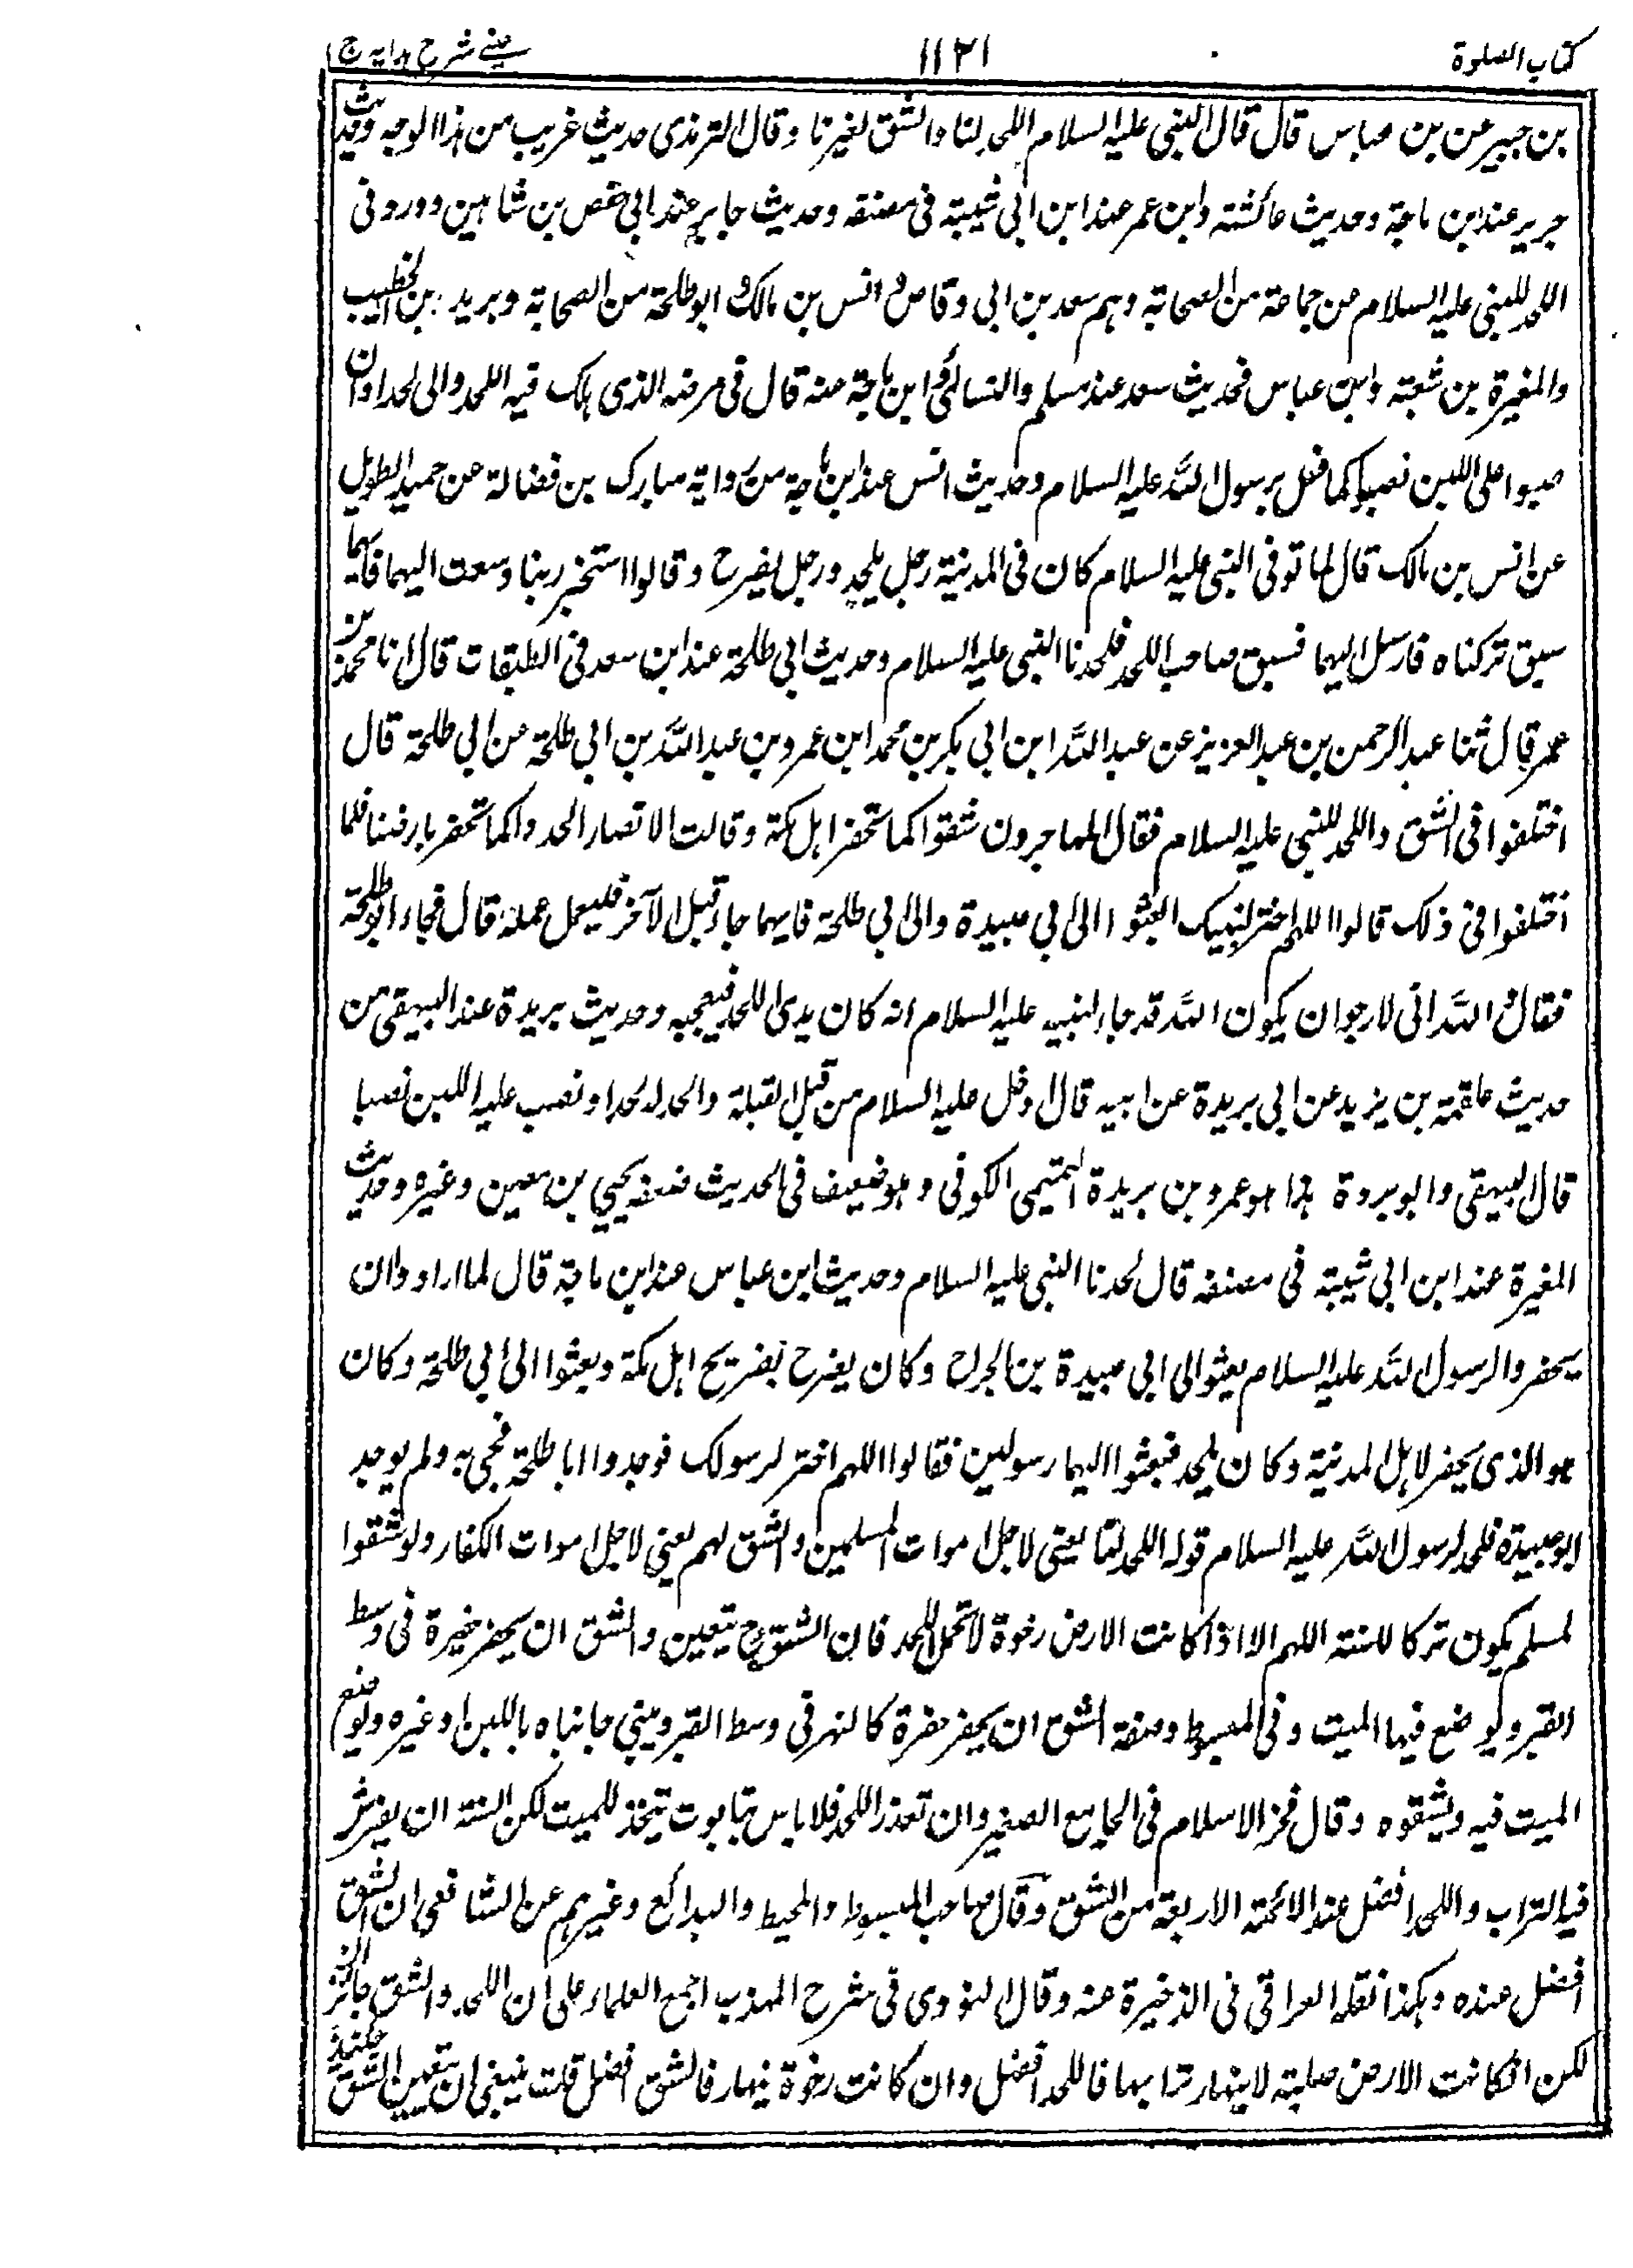 كتاب الصلوة ١١٢١ عينے شرح ہدایہ ج ١
بن جبير عن بن عباس قال قال النبى عليه السلام اللحد لنا والشق لغيرنا وقال الترمذى حديث غريب من هذا الوجه وحديث
جرير عند ابن ماجة وحديث عائشة وابن عمر عند ابن ابى شيبة فى مصنفه وحديث جابر عند ابى حفص بن شاهين وورد فى
اللحد للنبى عليه السلام عن جماعة من الصحابة وهم سعد بن ابى وقاص وانس بن مالك وابو طلحة من الصحابة وبريد بن الخطيب
والمغيرة بن شعبة وابن عباس فحديث سعد عند مسلم والنسائى وابن ماجة عنه قال فى مرضه الذى هلك فيه اللحد والى لحدا وان
صبوا على اللبن نصبا كما فعل برسول الله عليه السلام وحديث انس عند ابن ماجة من رواية مبارك بن فضالة عن حميد الطويل
عن انس بن مالك قال لما توفى النبى عليه السلام كان فى المدينة رجل يلحد ورجل يضرح وقالوا استخير ربنا وسعت اليهما فايهما
سبق تركناه فارسل اليهما فسبق صاحب اللحد فلحدنا النبى عليه السلام وحديث ابى طلحة عند ابن سعد فى الطبقات قال انا محمد بن
عمر قال ثنا عبد الرحمن بن عبد العزيز عن عبد الله ابن ابى بكر بن محمد ابن عمرو بن عبد الله بن ابى طلحة عن ابى طلحة قال
اختلفوا فى الشق واللحد للنبى عليه السلام فقال المهاجرون شقوا كما تحفر اهل مكة وقالت الانصار الحدوا كما تحفر بارضنا فلما
اختلفوا فى ذلك قالوا اللهم اختر لنبيك ابعثوا الى ابى عبيدة والى ابى طلحة فايهما جاء قبل الآخر فليعمل عمله قال فجاء ابو طلحة
فقال والله انى لارجو ان يكون الله قد جاء لنبيه عليه السلام انه كان يدى اللحد فيعجبه وحديث بريدة عند البيهقى من
حديث علقمة بن يزيد عن ابى بريدة عن ابيه قال دخل عليه السلام من قبل القبلة والحد له لحدا ونصب عليه اللبن نصبا
قال البيهقى وابو بردة هذا هو عمرو بن بريدة التيمى الكوفى وهو ضعيف فى الحديث ضعفه يحيى بن معين وغيره وحديث
المغيرة عند ابن ابى شيبة فى مصنفه قال لحدنا النبى عليه السلام وحديث ابن عباس عند ابن ماجة قال لما ارادوا ان
يحفروا لرسول الله عليه السلام بعثوا الى ابى عبيدة بن الجراح وكان يضرح بضريح اهل مكة وبعثوا الى ابى طلحة وكان
هو الذى يحفر لاهل المدينة وكان يلحد فبعثوا اليهما رسولين فقالوا اللهم اختر لرسولك فوجدوا ابا طلحة فجئ به ولم يوجد
ابو عبيدة فلحد لرسول الله عليه السلام قوله اللحد لنا يعنى لاجل اموات المسلمين والشق لهم يعنى لاجل اموات الكفار ولو شقوا
لمسلم يكون تركا للسنة اللهم الا اذا كانت الارض رخوة لا تحمل اللحد فان الشق ح يتعين والشق ان يحفر حفيرة فى وسط
القبر ويوضع فيها الميت وفى المبسوط وصفة الشق ان يحفر حفرة كالنهر فى وسط القبر ويبنى جانباه باللبن او غيره ويوضع
الميت فيه ويشقوه وقال فخر الاسلام فى الجامع الصغير وان تعذر اللحد فلا باس بتابوت يتخذ للميت لكن السنة ان يفرش
فيه التراب واللحد افضل عند الائمة الاربعة من الشق وقال صاحب المبسوط والمحيط والبدائع وغيرهم عن الشافعى ان الشق
افضل عنده وهكذا نقله العراقى فى الذخيرة عنه وقال النووى فى شرح المهذب اجمع العلماء على ان اللحد والشق جائزان
لكن انكانت الارض صلبة لا ينهار ترابها فاللحد افضل وان كانت رخوة ينهار فالشق افضل قلت ينبغى ان يتعين الشق حينئذ